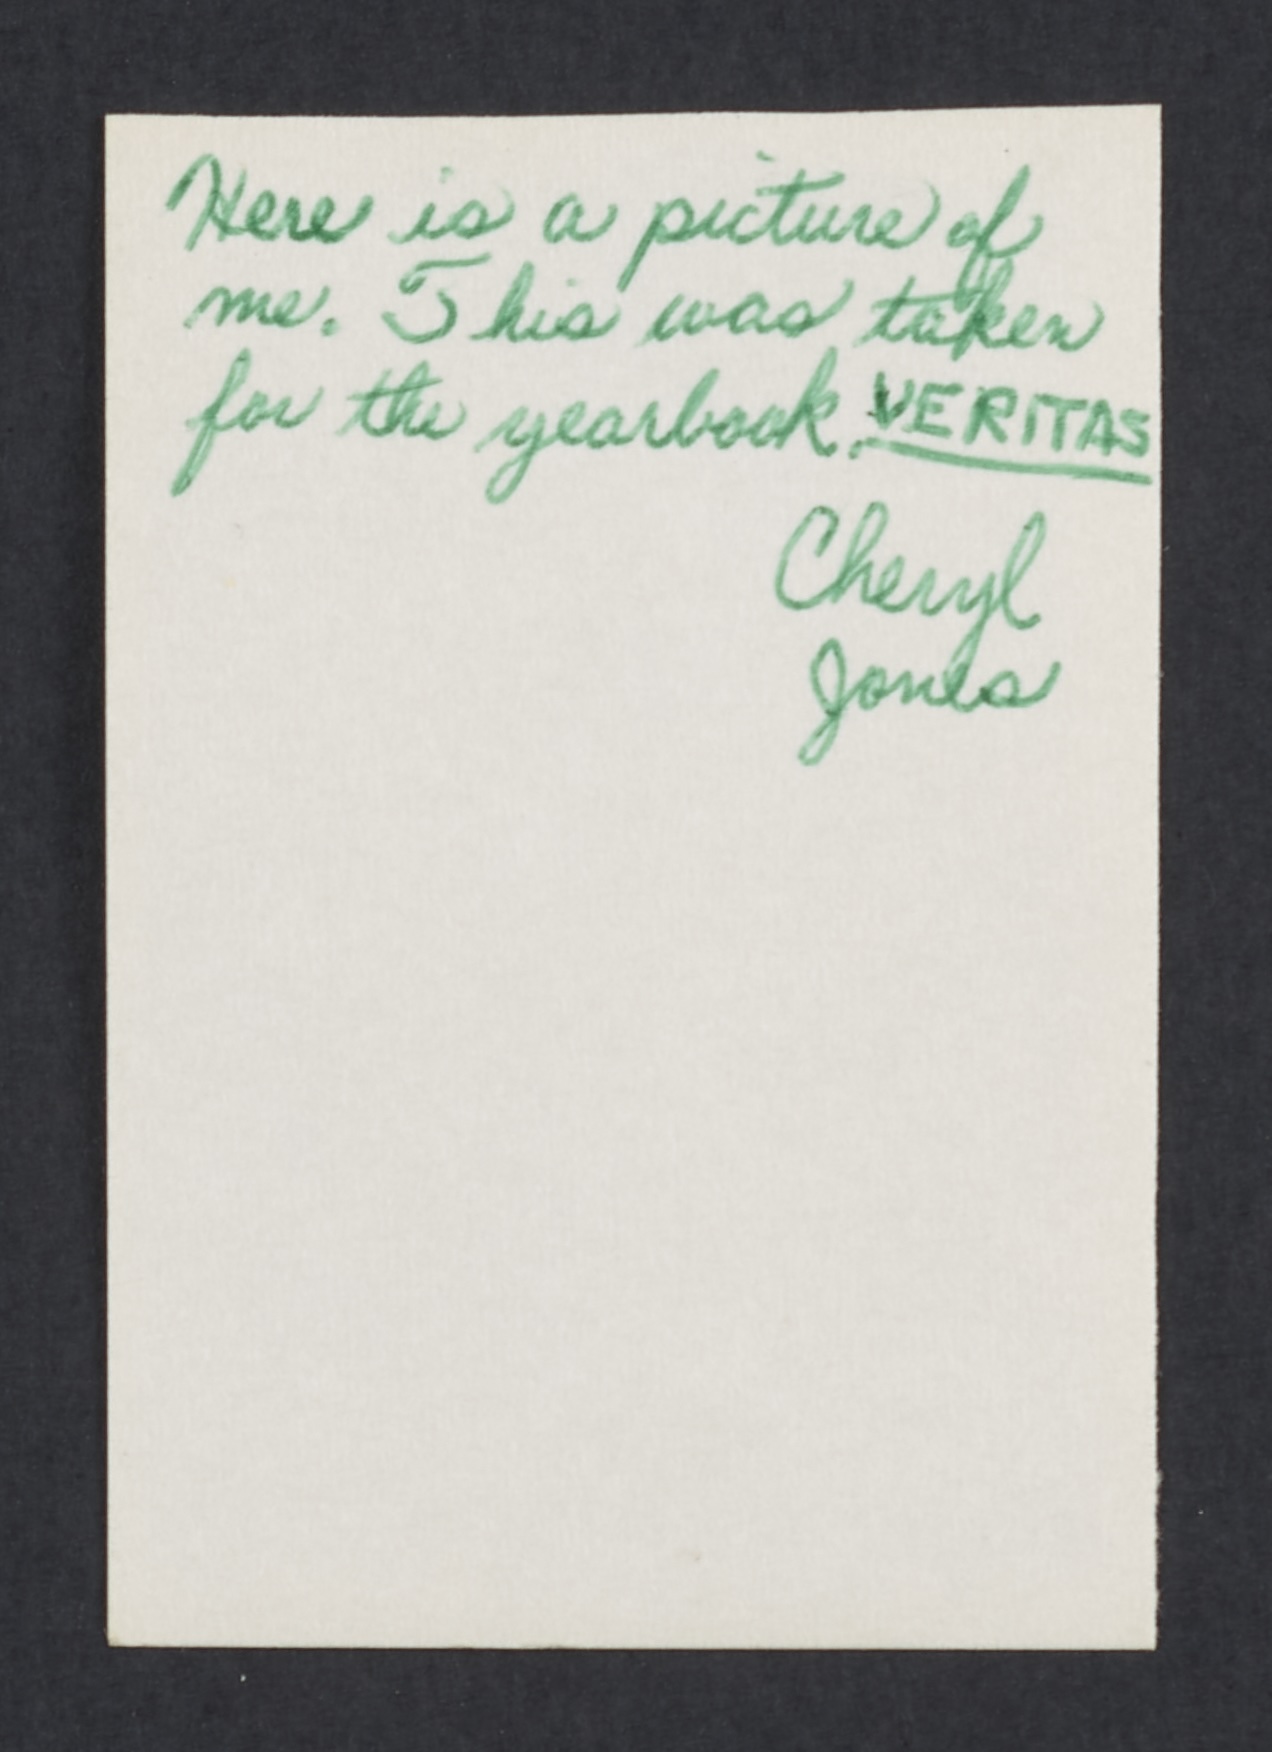 Here is a picture of
me. This was taken
for the yearbook. VERITAS
Cheryl
Jones